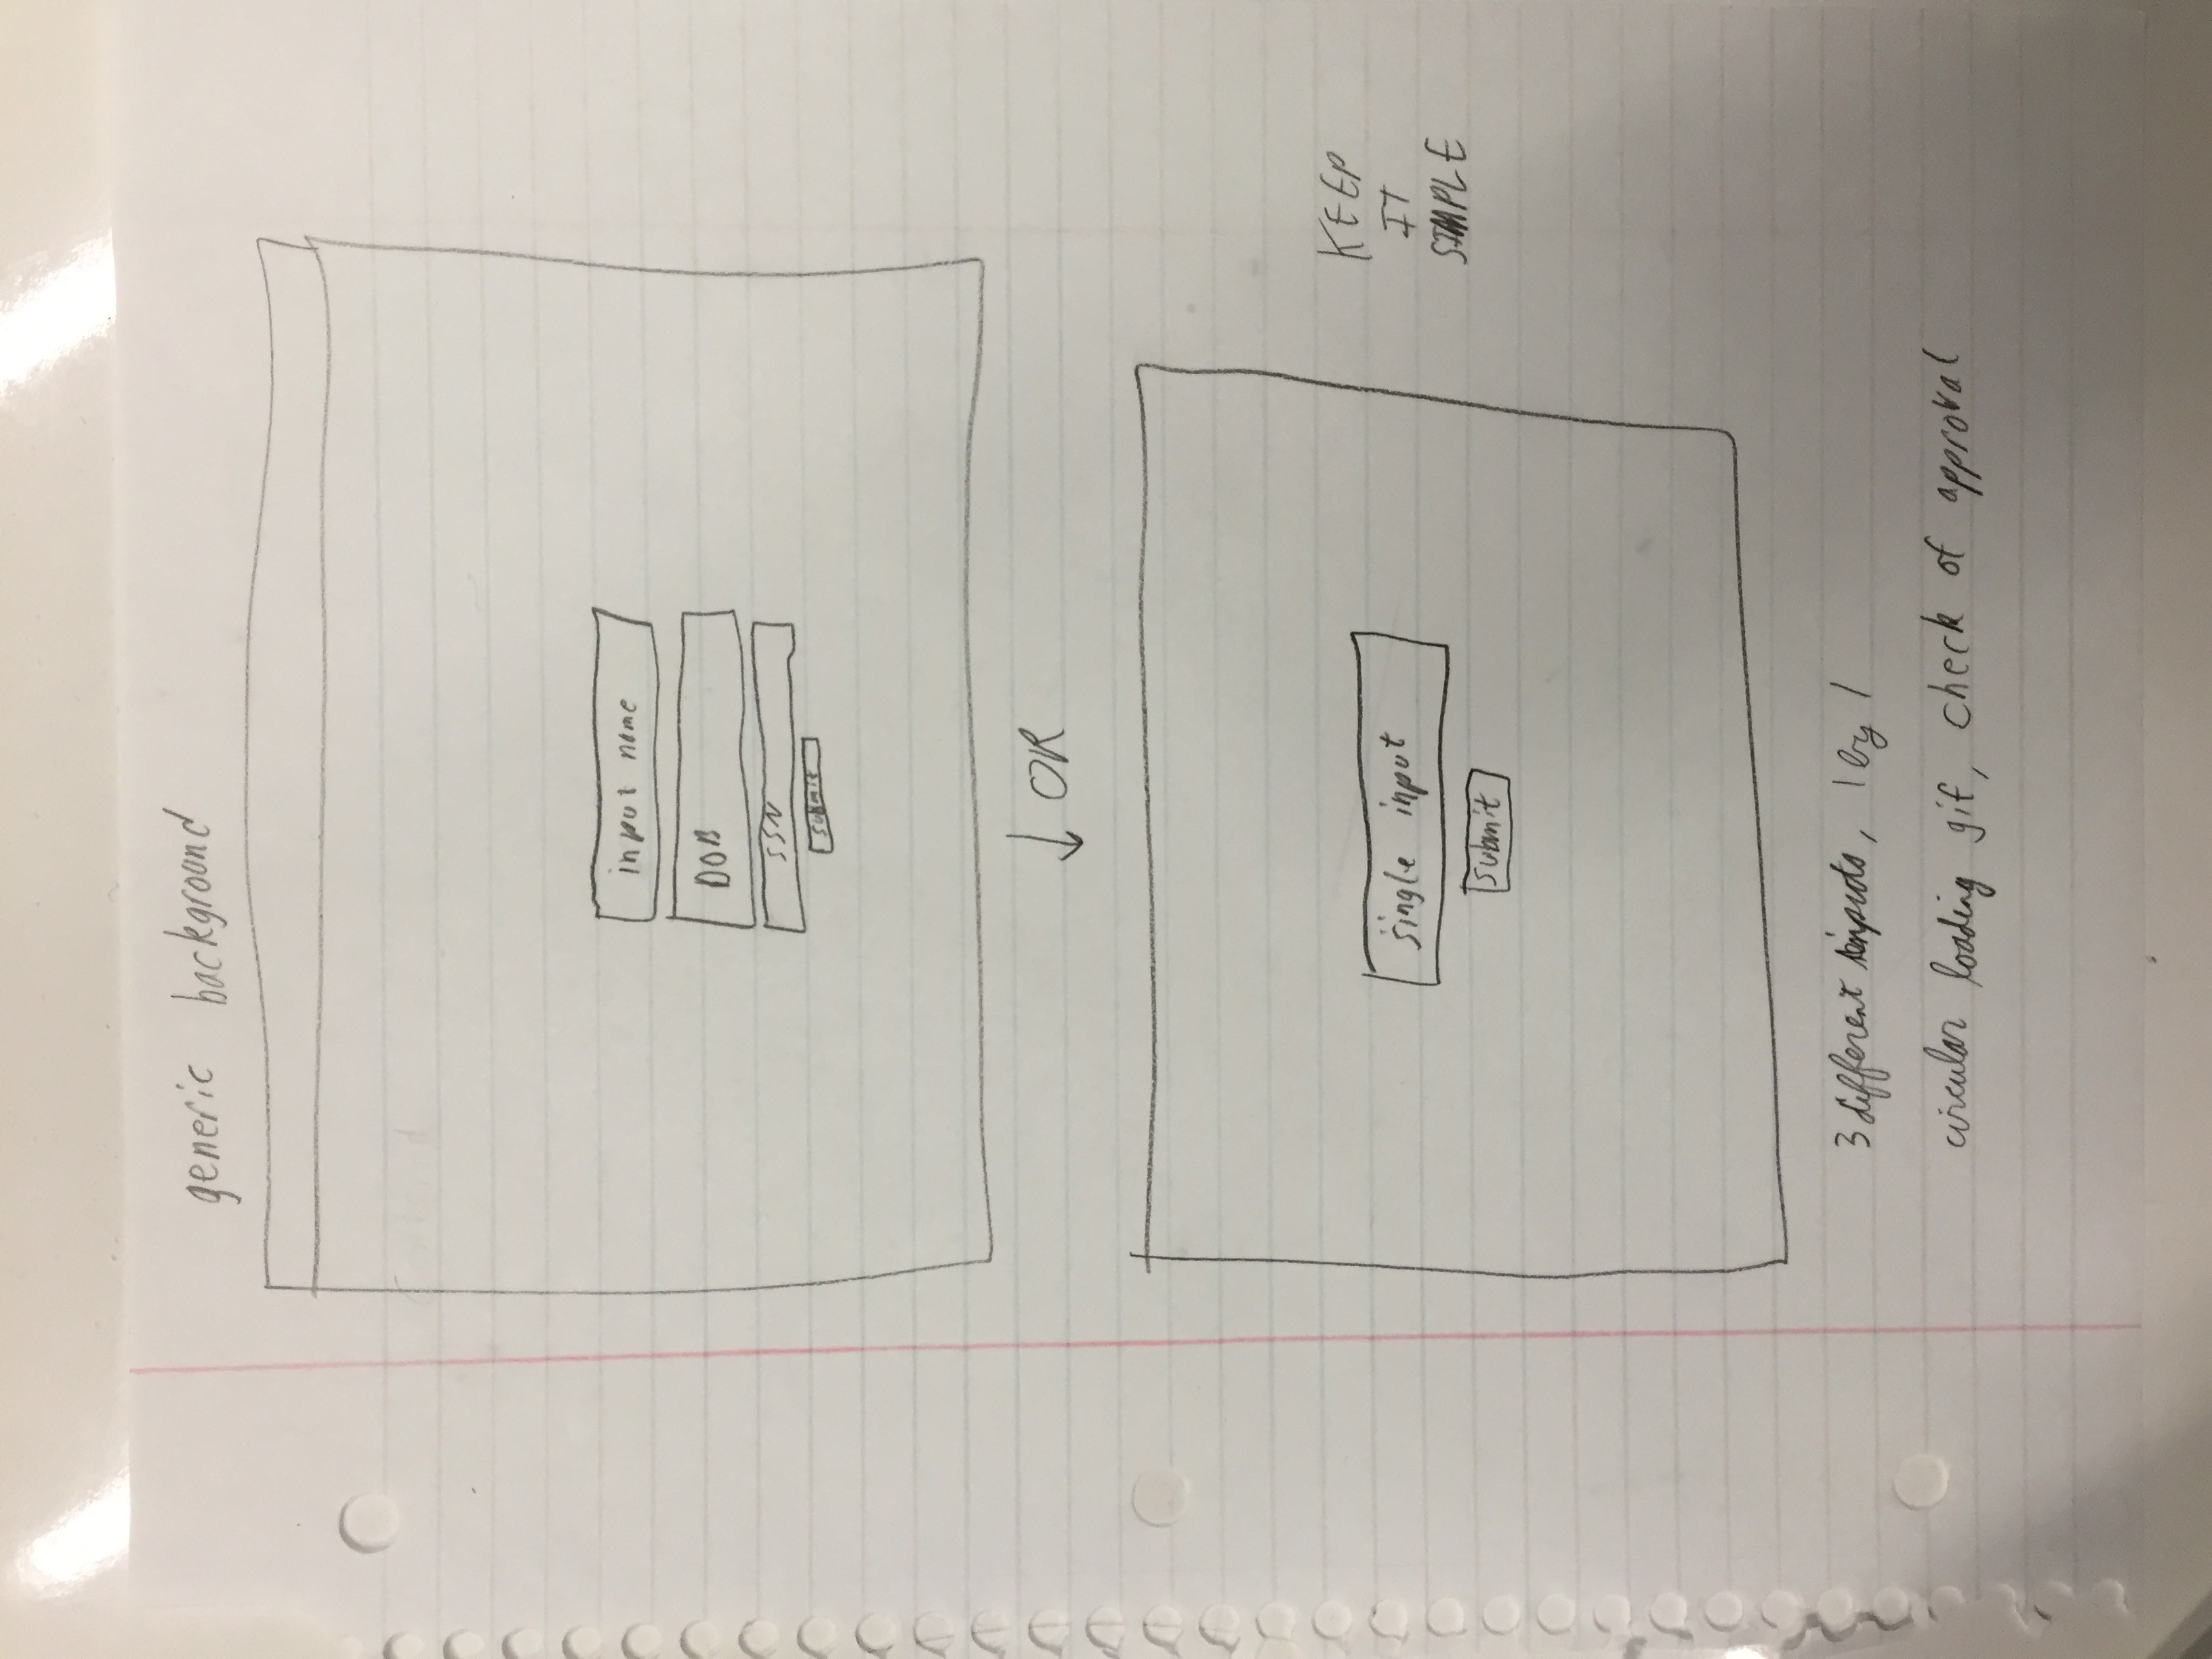 generic background
input name
DOB
SSN
submit
OR
single input
submit
KEEP
IT
SIMPLE
3 different inputs, 1 by 1
circular loading gif, check of approval